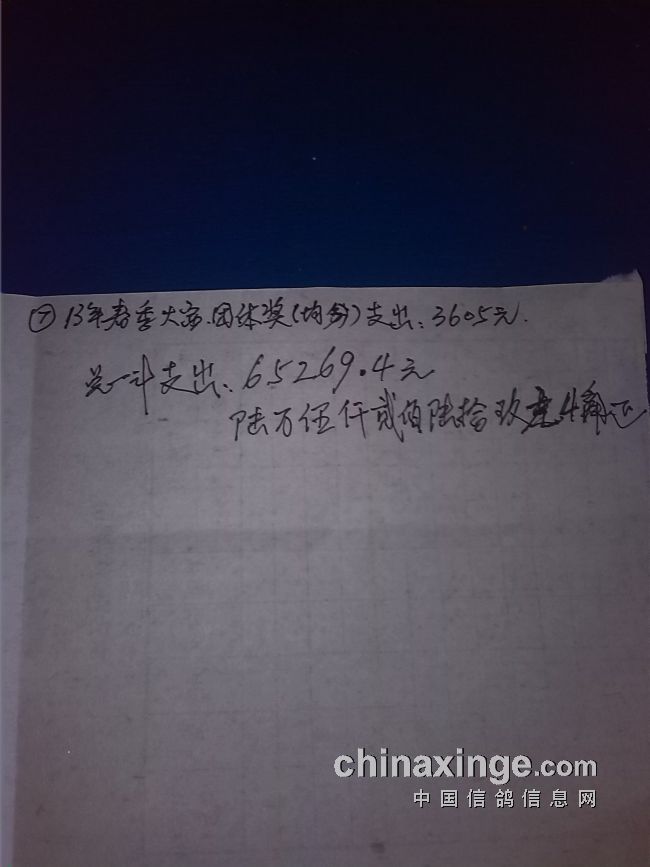 ⑦ 13年春季大奖.团体奖(均分)支出:3605元.
总计支出:65269.4元
陆万伍仟贰佰陆拾玖元4角正
chinaxinge.com
中国信鸽信息网